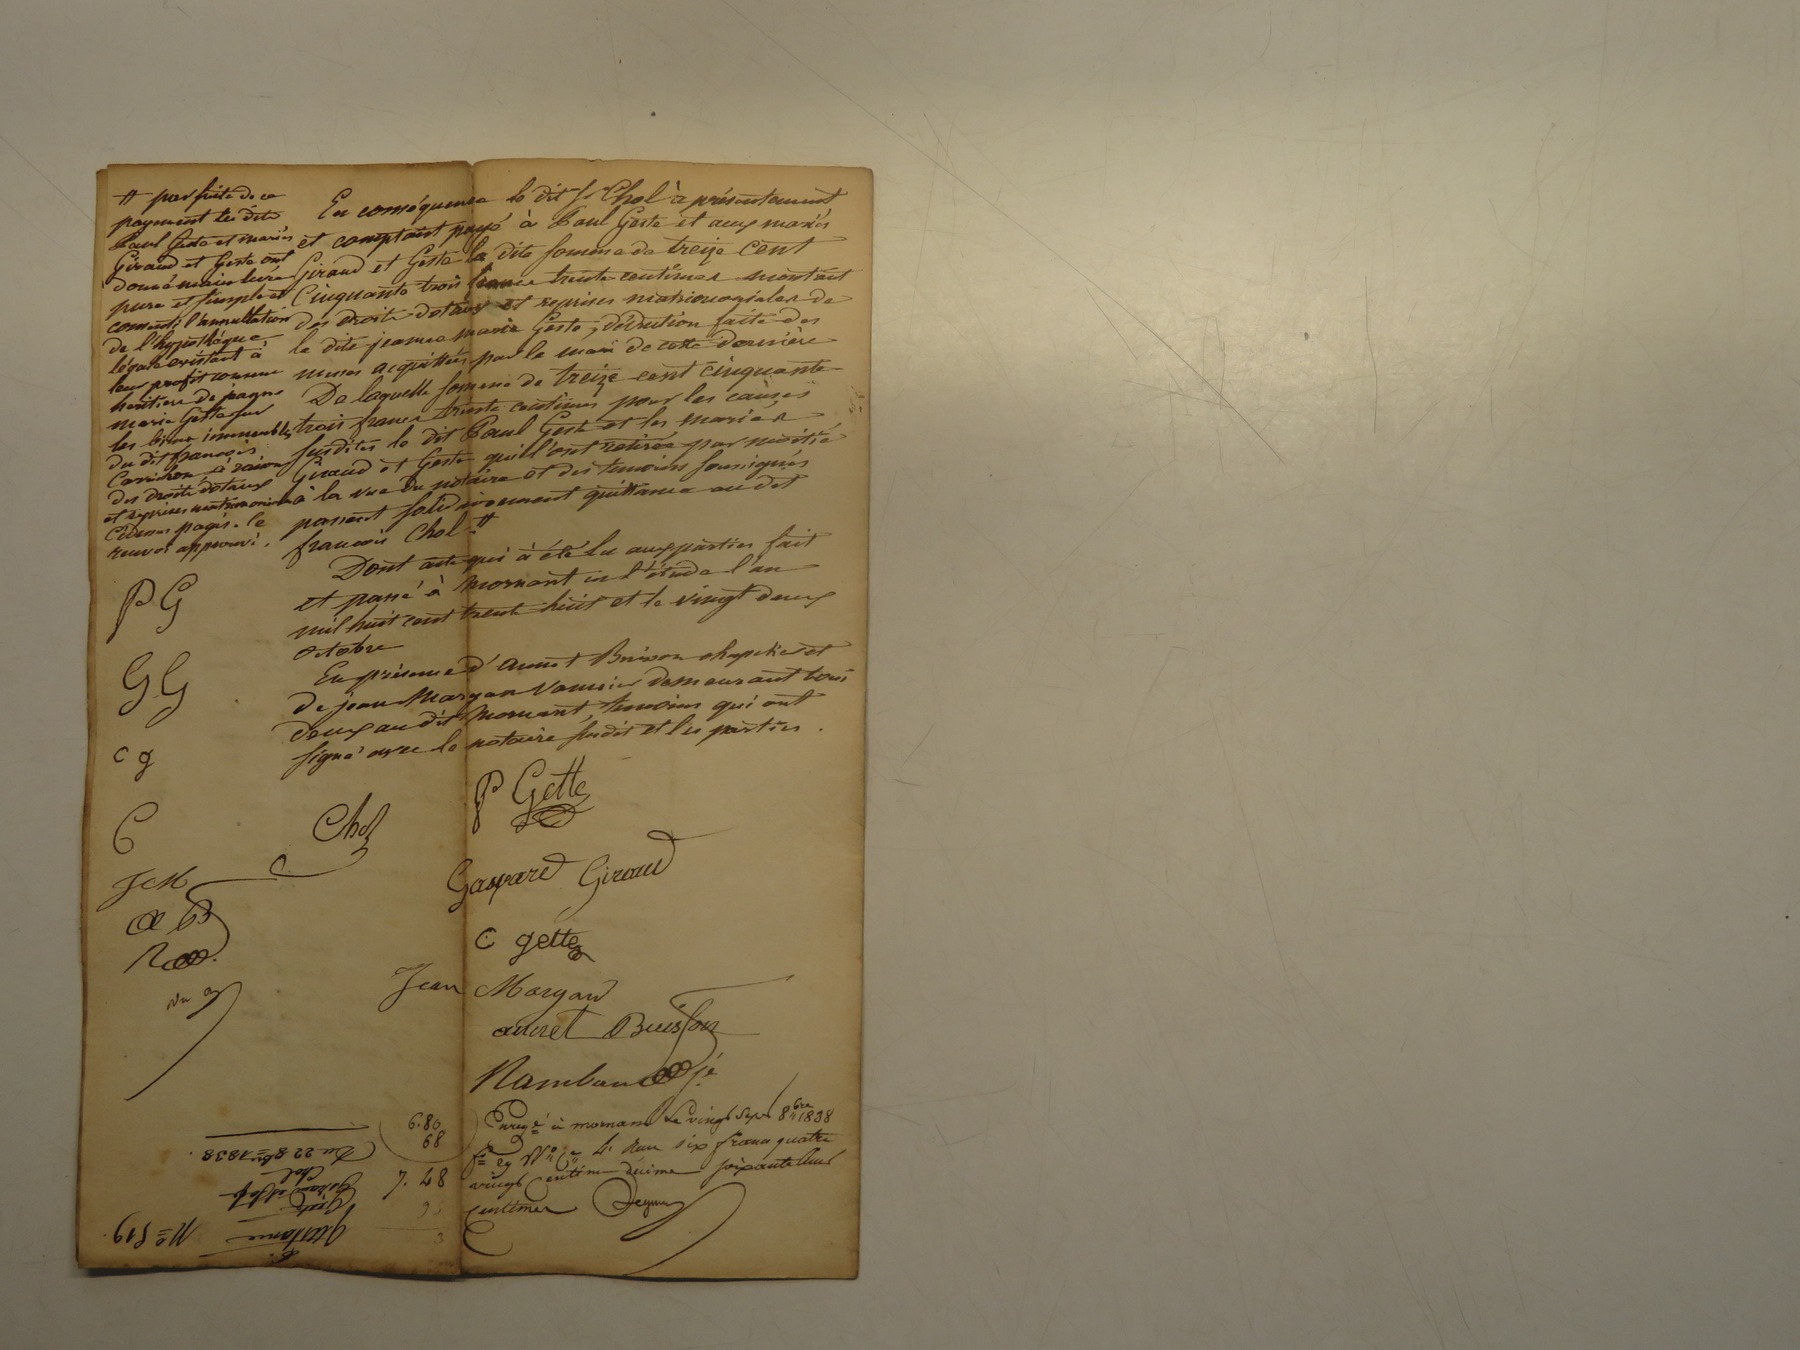 En conséquence le dit sr Chol à présentement
et comptant payé à Paul Geste et aux mariés
Giraud et Geste la dite somme de treize cent
Cinquante trois francs trente centimes montant
des droits dotaux et reprises matrimoniales de
la dite jeanne marie Geste, déduction faite des
mises acquittées par le mari de cette dernière
De laquelle somme de treize cent cinquante
trois francs trente centimes pour les causes
susdites le dit Paul Geste et les mariés
Giraud et Geste qui l'ont retirée par moitié
à la vue du notaire et des temoins soussignés
passent solidairement quittance au dit
françois Chol #
Dont acte qui à été lu aux parties fait
et passé à Mornant en l'étude l'an
mil huit cent trente huit et le vingt deux
octobre
En présence d'Annet Buisson chapelier et
de jean Margan vannier demeurant tous
deux au dit Mornant, temoins qui ont
signé avec le notaire susdit et les parties.
# par suite de ce
payement les dits
Paul Geste et mariés
Giraud et Geste ont
donné main levée
pure et simple et
consenti l'annullation
de l'hypothèque
légale existant à
leur profit comme
héritiers de jeanne
marie Gette sur
les biens immeubles
du dit françois
à raison
des droits dotaux
et reprises matrimoniales
cidessus payés. le
renvoi approuvé.
P G
G G
c g
C
J M
a B
R
Chol
P Gette
Gaspard Giraud
C gette
Jean Margan
annet Buisson
Rambaud
Enregé à mornant le vingt sept 8bre 1838
fo 29 Vo Ce 4. Reçu six francs quatre
vingt centimes décime soixante huit
centimes
6.80
68
7.48
No 519.
Quittance
Geste
Giraud
Chol
Du 22 8bre 1838.